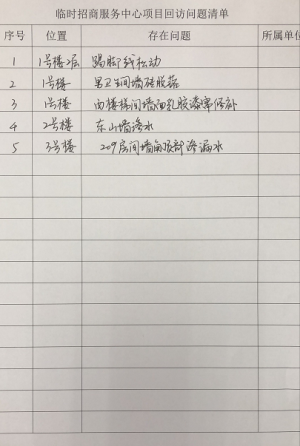 临时招商服务中心项目回访问题清单
序号 位置 存在问题 所属单位
1 1号楼2层 踢脚线松动
2 1号楼 男卫生间墙砖脱落
3 1号楼 内楼梯间墙面乳胶漆需修补
4 2号楼 东山墙渗水
5 3号楼 209房间墙角根部渗漏水